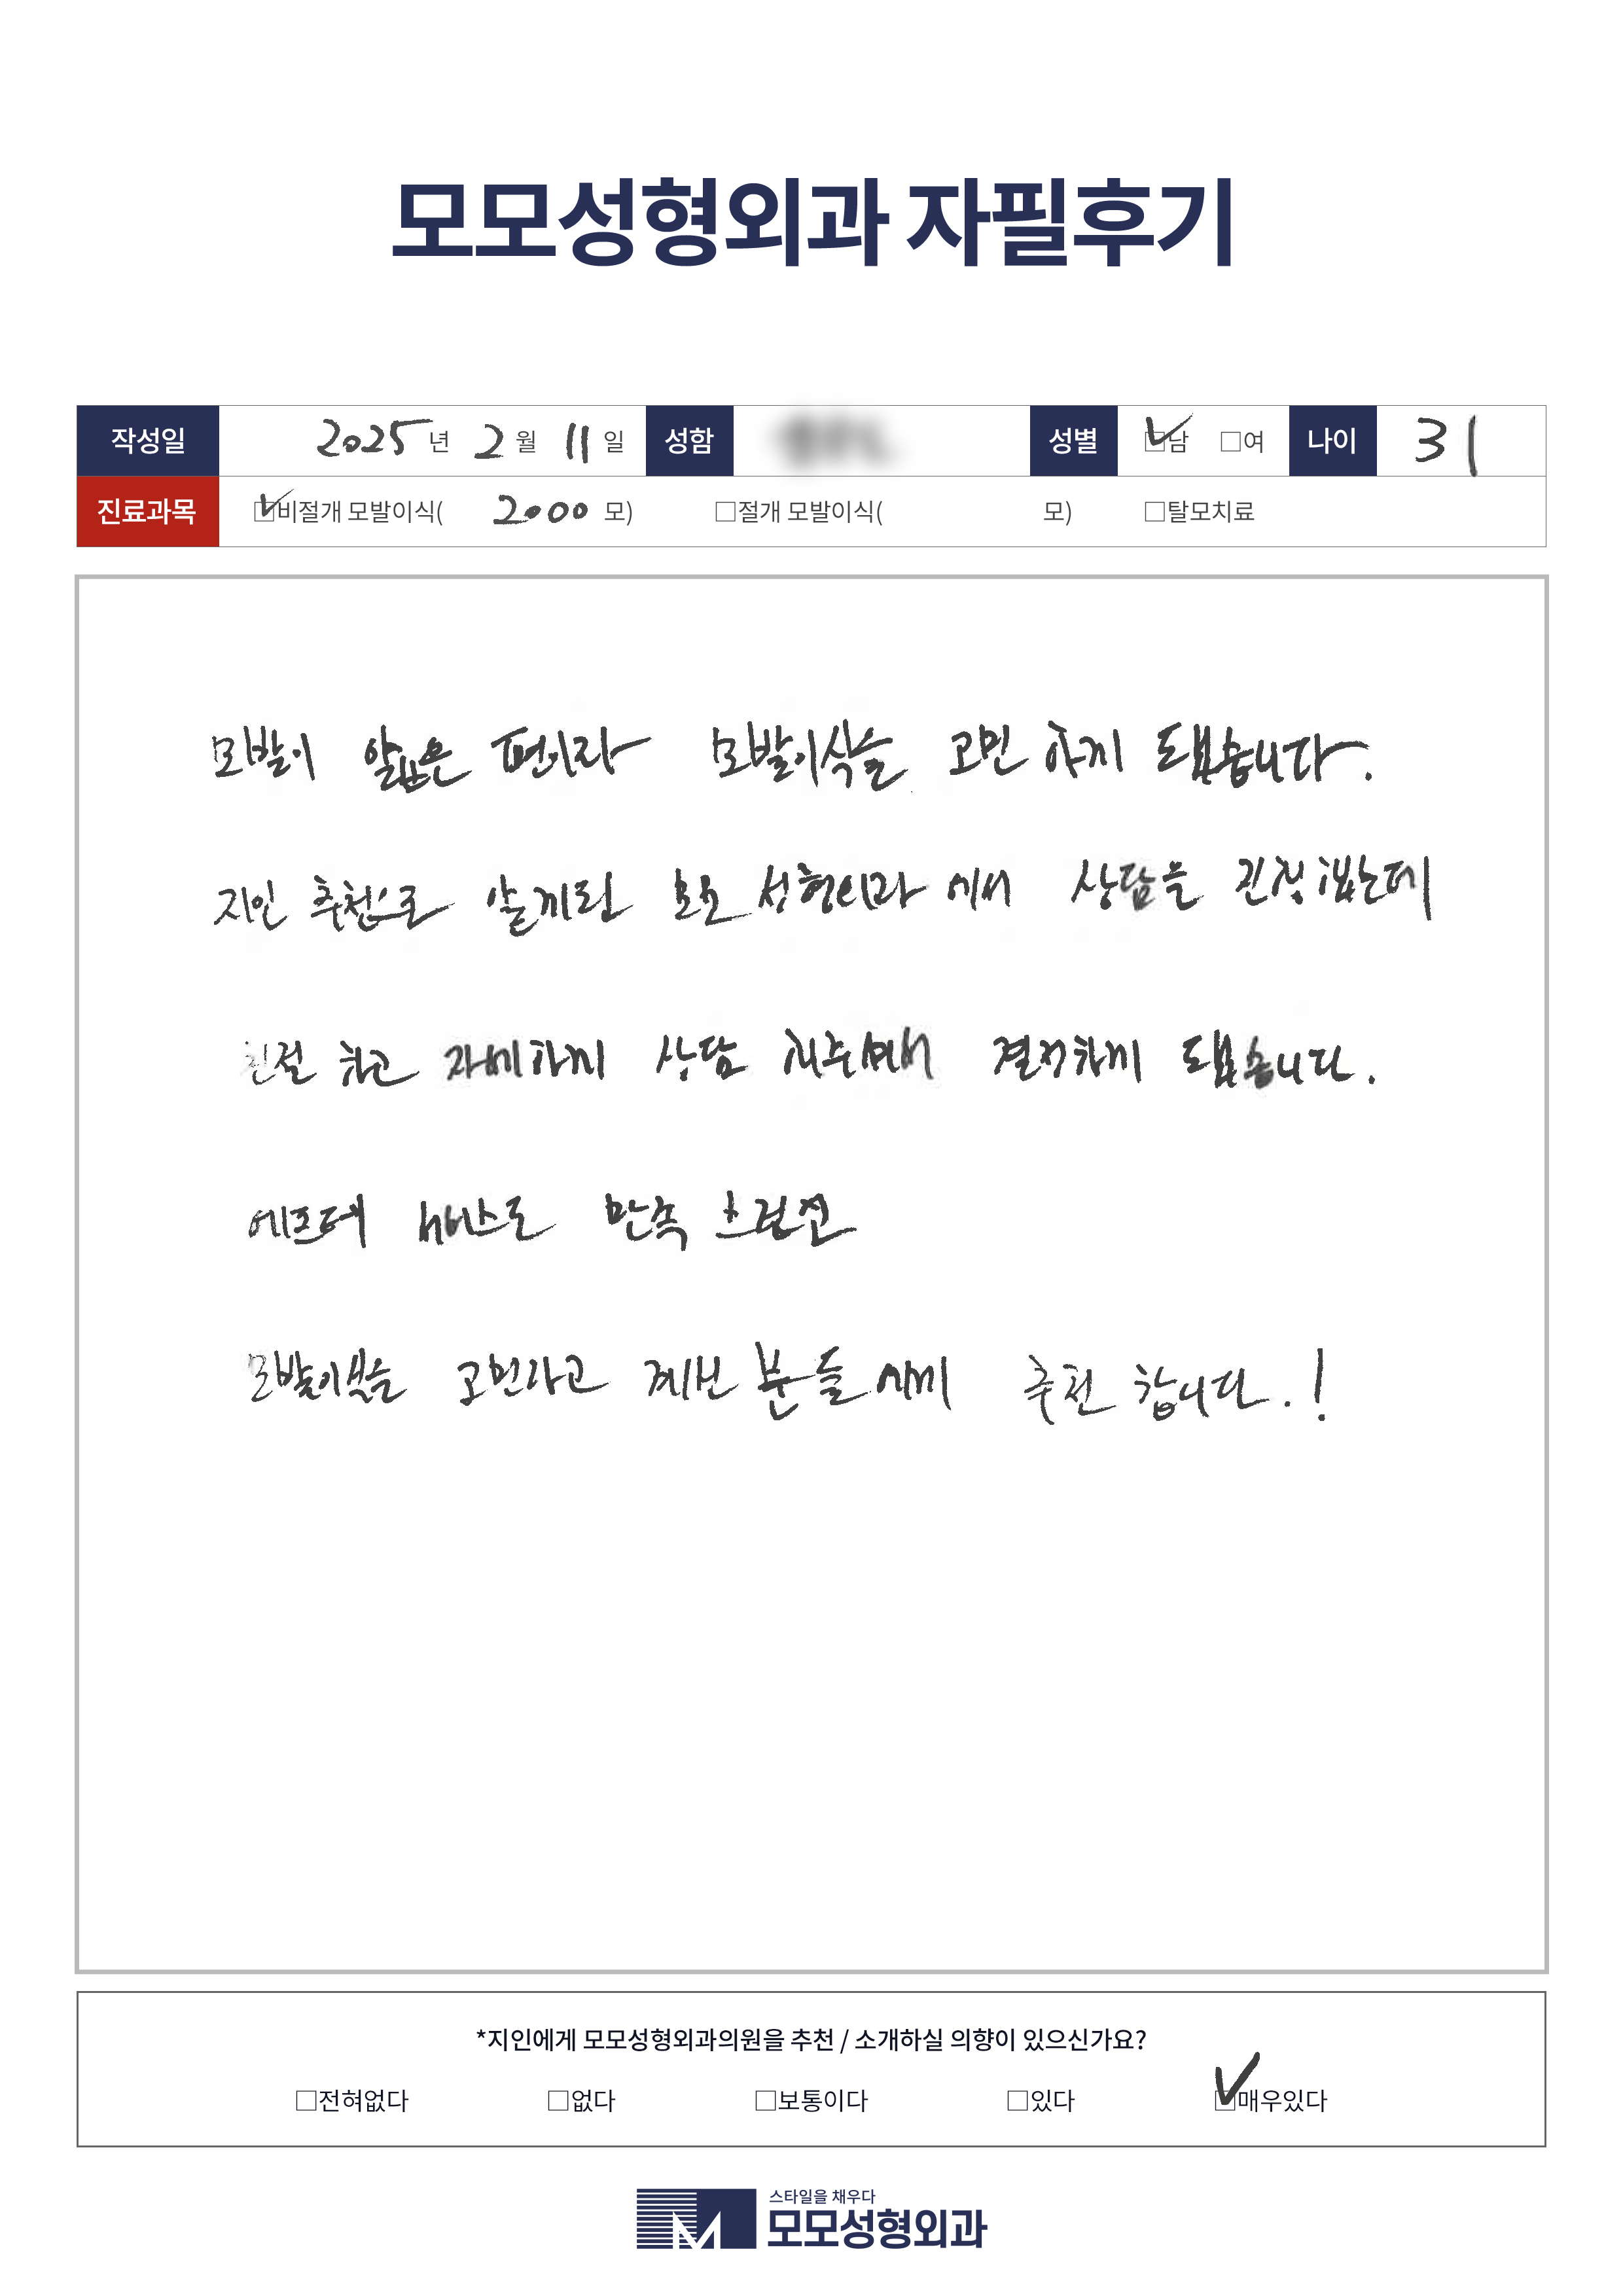 모모성형외과 자필후기
작성일 2025년 2월 11일 성함 성별 ☑남 □여 나이 31
진료과목 ☑비절개 모발이식( 2000 모) □절개 모발이식( 모) □탈모치료
모발이 얇은 편이라 모발이식을 고민 하게 되었습니다.
지인 추천으로 알게된 모모 성형외과 에서 상담을 진행했는데
친절 하고 자세하게 상담 해주셔서 결정하게 되었습니다.
에프터 서비스도 만족
모발이식을 고민하고 계신 분들 에게 추천 합니다.!
*지인에게 모모성형외과의원을 추천 / 소개하실 의향이 있으신가요?
□전혀없다 □없다 □보통이다 □있다 ☑매우있다
스타일을 채우다
모모성형외과